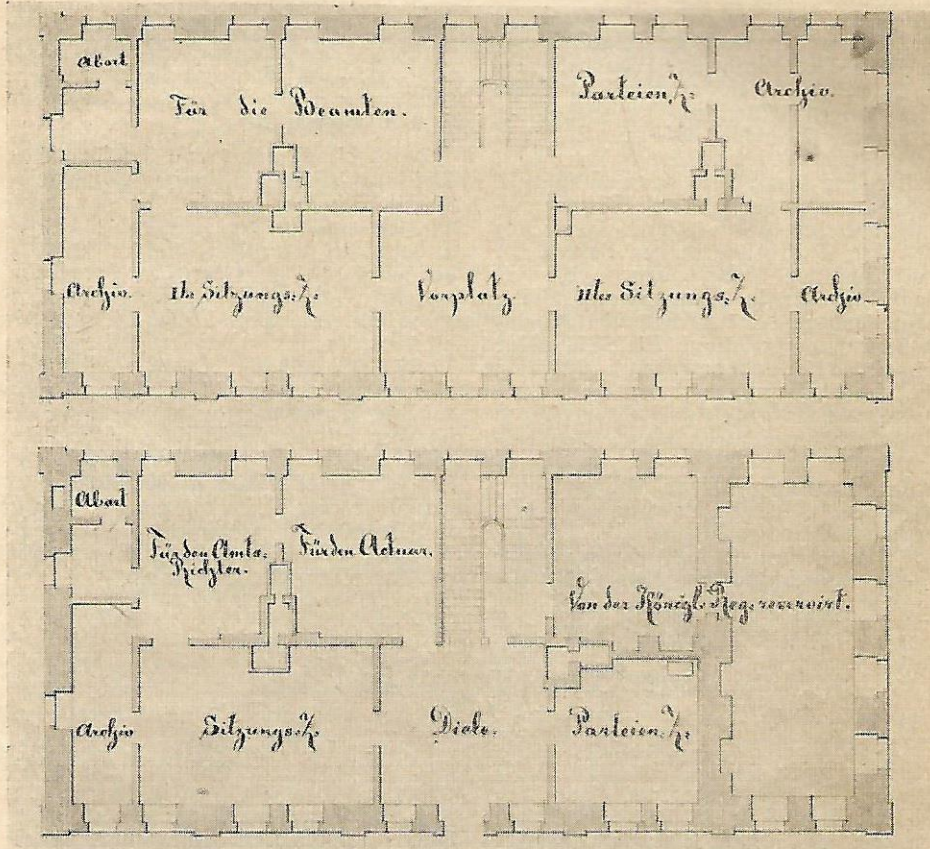 Abort
Für die Beamten.
Parteien Z:
Archiv.
Archiv.
Ites Sitzungs:Z:
Vorplatz
IItes Sitzungs:Z:
Archiv
Abort
Für den Amts-
Richter.
Für den Actuar.
Von der Königl. Reg. reservirt.
Archiv
Sitzungs:Z:
Diele.
Parteien Z: